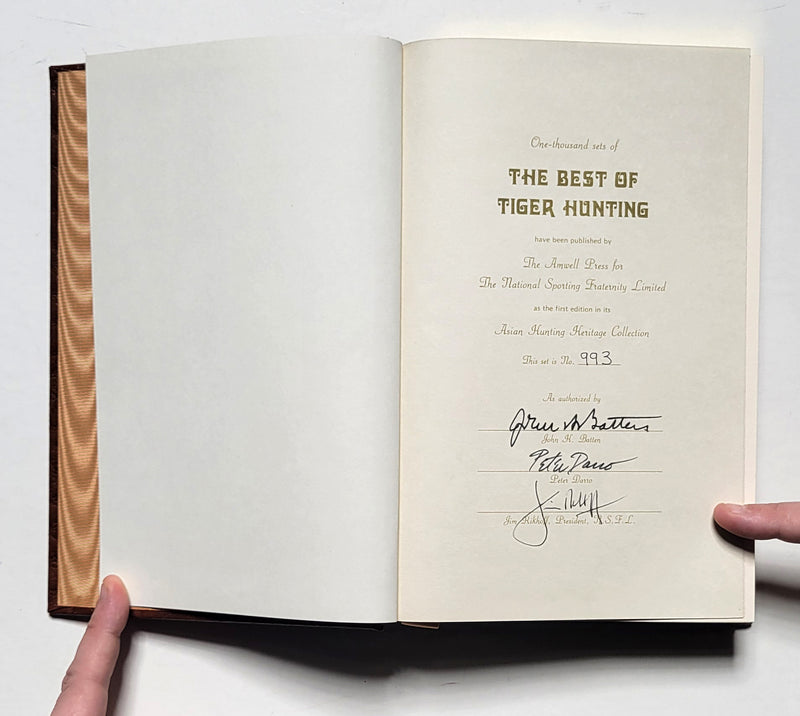 One-thousand sets of
THE BEST OF
TIGER HUNTING
have been published by
The Amwell Press for
The National Sporting Fraternity Limited
as the first edition in its
Asian Hunting Heritage Collection
This set is No. 993
As authorized by
John H. Batten
John H. Batten
Peter Darro
Peter Darro
Jim Rikhoff
Jim Rikhoff, President, N.S.F.L.